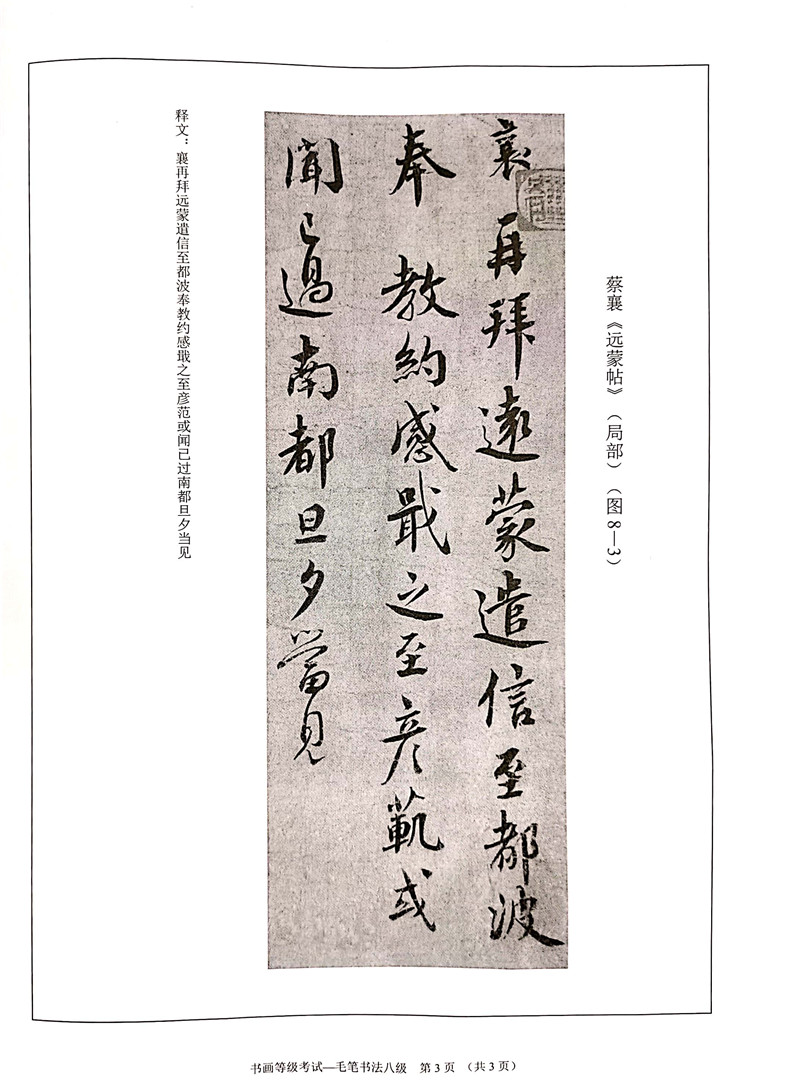 蔡襄《远蒙帖》（局部）（图8—3）
襄再拜遠蒙遣信至都波
奉 教約感戢之至彦範或
聞已過南都旦夕當見
释文：襄再拜远蒙遣信至都波奉教约感戢之至彦范或闻已过南都旦夕当见
书画等级考试—毛笔书法八级 第3页 （共3页）